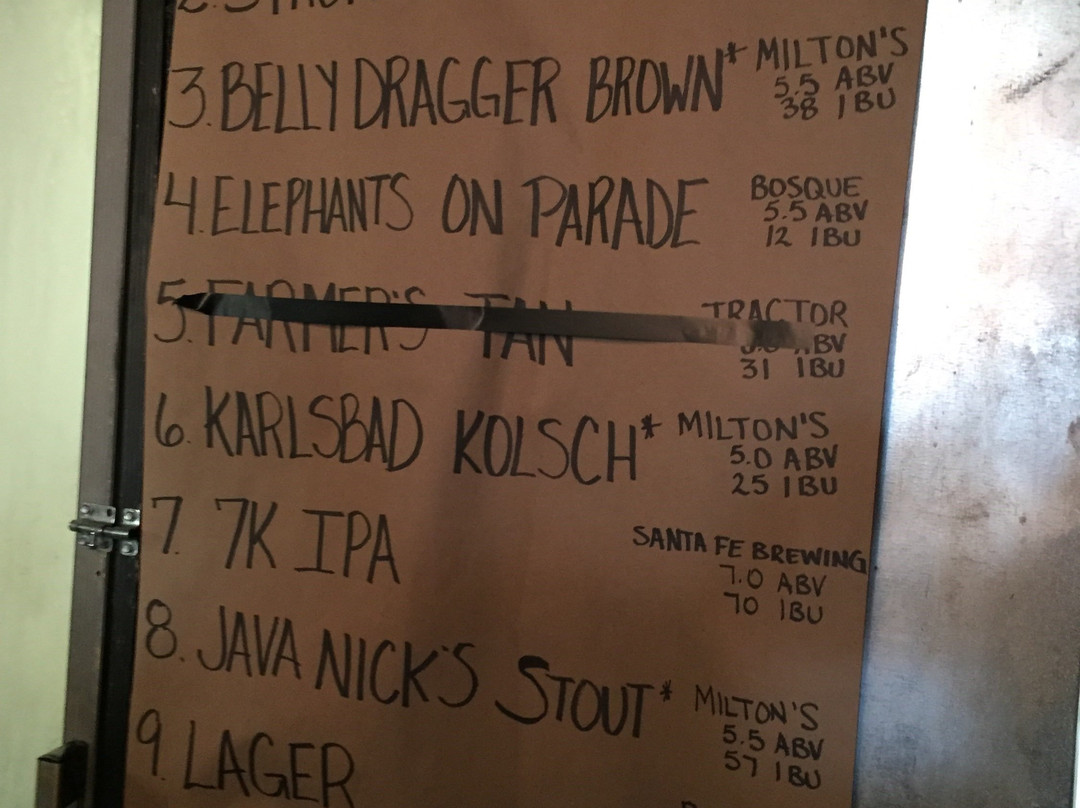 3. BELLY DRAGGER BROWN* MILTON'S
5.5 ABV
38 IBU
4. ELEPHANTS ON PARADE BOSQUE
5.5 ABV
12 IBU
5. FARMER'S TAN TRACTOR
ABV
31 IBU
6. KARLSBAD KOLSCH* MILTON'S
5.0 ABV
25 IBU
7. 7K IPA SANTA FE BREWING
7.0 ABV
70 IBU
8. JAVA NICK'S STOUT* MILTON'S
5.5 ABV
57 IBU
9. LAGER